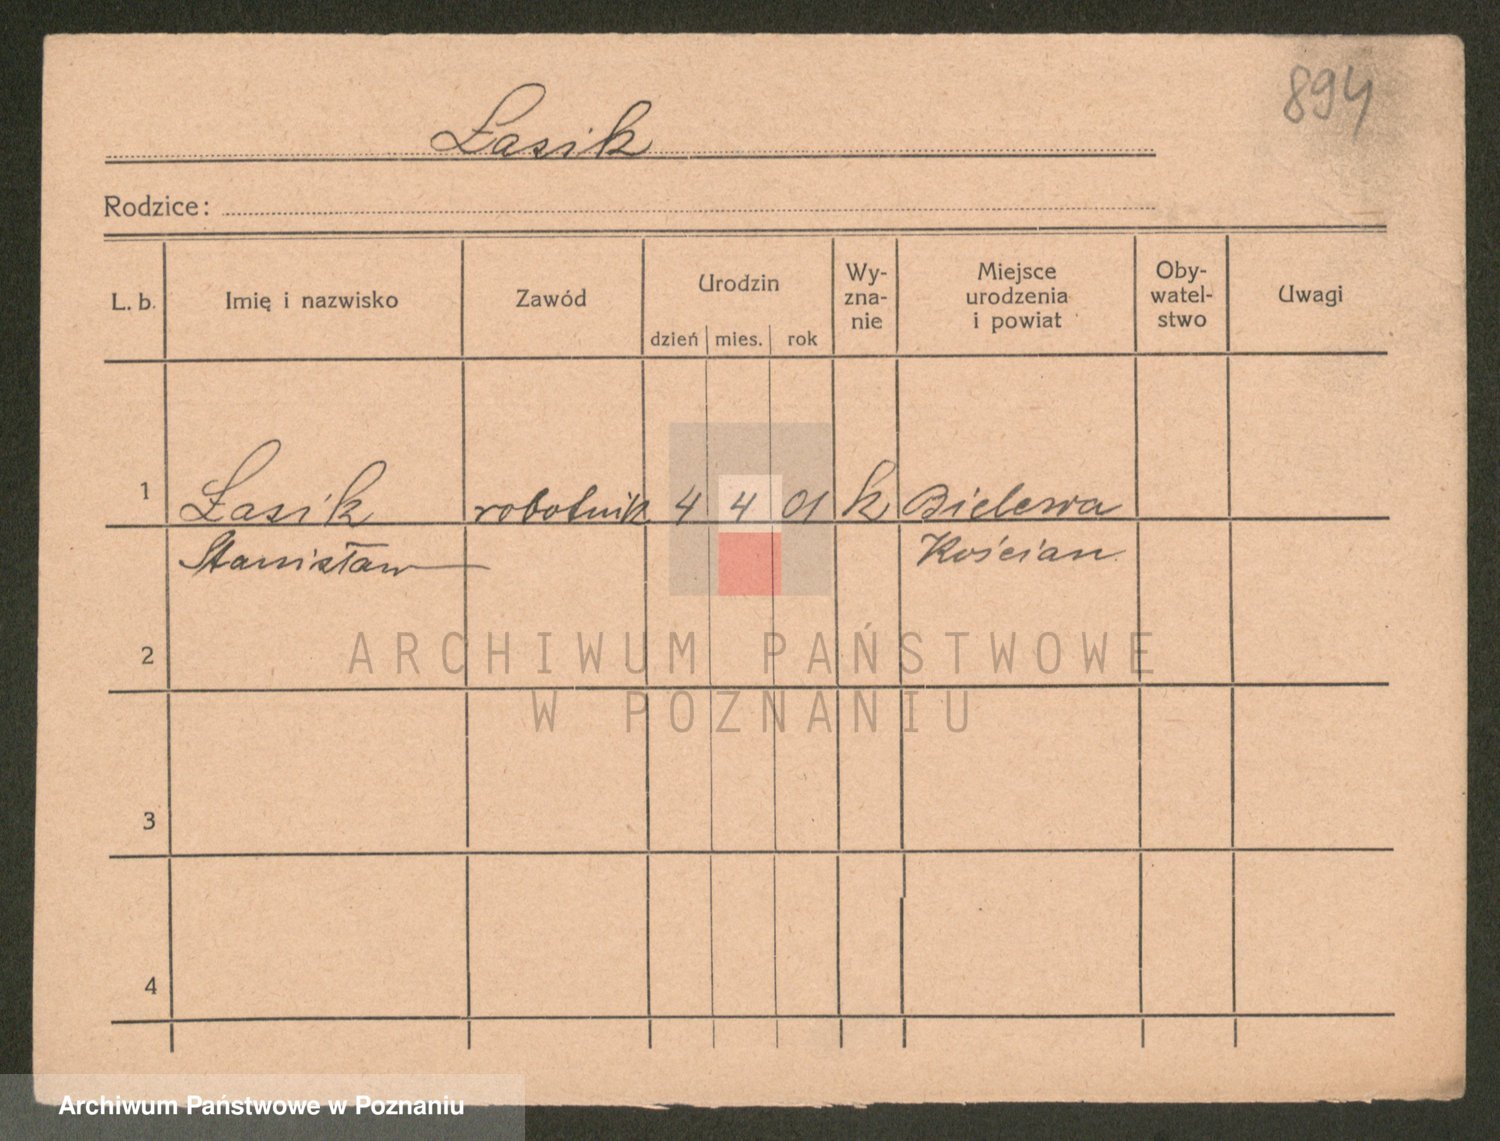 894
Łasik
Rodzice:
L. b. Imię i nazwisko Zawód Urodzin dzień mies. rok Wy-zna-nie Miejsce urodzenia i powiat Oby-watel-stwo Uwagi
1 Łasik robotnik 4 4 01 k Bielewa
Stanisław Kościan
2
3
4
ARCHIWUM PAŃSTWOWE
W POZNANIU
Archiwum Państwowe w Poznaniu